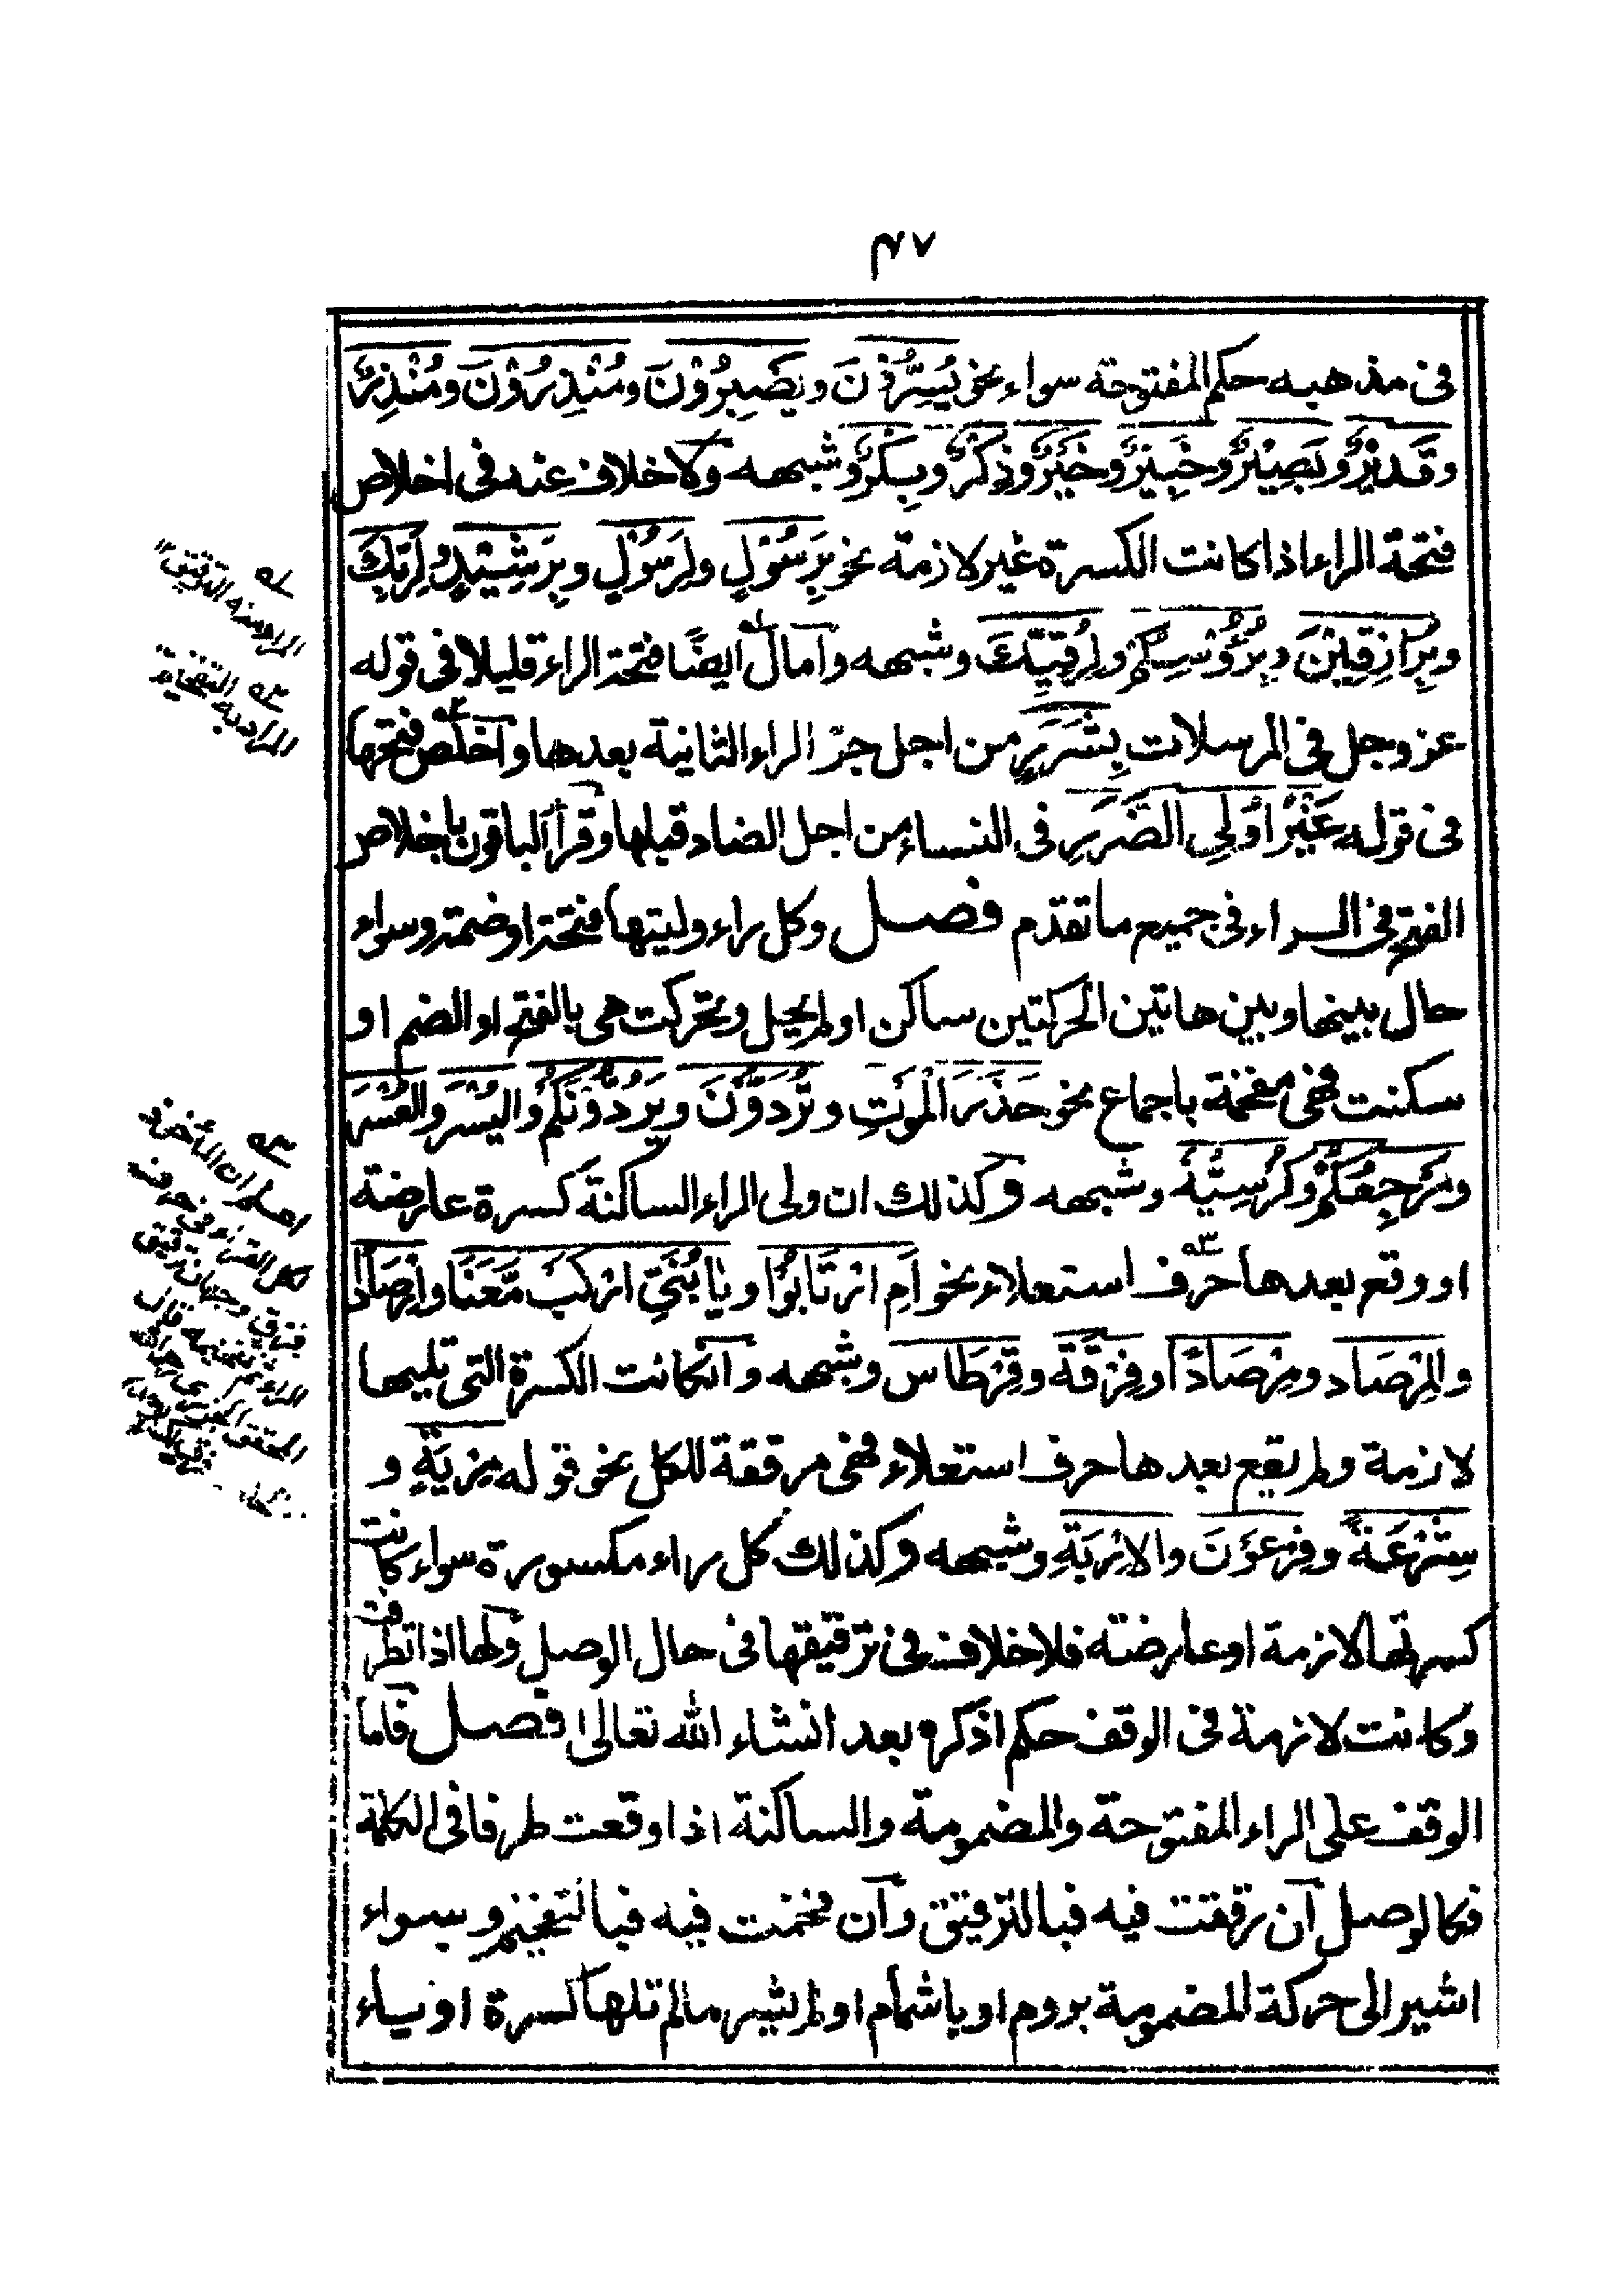 ٤٧
فى مذهبه حكم المفتوحة سواء نحو يُسِرُّوْنَ ويَصْبِرُوْنَ ومُنْذِرُوْنَ ومُنْذِرٌ
وقَدِيْرٌ وبَصِيْرٌ وخَبِيْرٌ وخَيْرٌ وذِكْرٌ وبِكْرٌ وشبهه ولا خلاف عنه فى اخلاص
فتحة الراء اذا كانت الكسرة غير لازمة نحو بِرَسُوْلٍ ولِرَسُوْلٍ وبِرَشِيْدٍ ولِرَبِّكَ
وبِرَازِقِيْنَ وبِرُؤُسِكُمْ ولِرُقِيِّكَ وشبهه وامال ايضًا فتحة الراء قليلا فى قوله
عز وجل فى المرسلات بِشَرَرٍ من اجل جرّ الراء الثانية بعدها واخلص فتحها
فى قوله غَيْرُ اُولِى الضَّرَرِ فى النساء من اجل الضاد قبلها وقرأ الباقون باخلاص
الفتح فى الراء فى جميع ما تقدم فصل وكل راء وليتها فتحة او ضمة وسواء
حال بينها وبين هاتين الحركتين ساكن او لم يحل وتحركت هى بالفتح او الضم او
سكنت فهى مفخمة باجماع نحو حَذَرَ الْمَوْتِ وتُرَدُّوْنَ ويَرُدُّوْنَكُمْ واليُسْرَ والعُسْرَ
ومَرْجِعُكُمْ وكُرْسِيُّهُ وشبهه وكذلك ان ولى الراء الساكنة كسرة عارضة
او وقع بعدها حرف استعلاء نحو اَمِ ارْتَابُوْا ويَا بُنَيَّ ارْكَبْ مَّعَنَا واِرْصَادًا
والمِرْصَاد ومِرْصَادًا وفِرْقَة وقِرْطَاس وشبهه وان كانت الكسرة التى تليها
لازمة ولم يقع بعدها حرف استعلاء فهى مرققة للكل نحو قوله مِرْيَةٍ و
شِرْعَةً وفِرْعَوْنَ والاِرْبَةِ وشبهه وكذلك كل راء مكسورة سواء كانت
كسرتها لازمة او عارضة فلا خلاف فى ترقيقها فى حال الوصل ولها اذا تطرفت
وكانت لازمة فى الوقف حكم اذكره بعد انشاء الله تعالى فصل فاما
الوقف على الراء المفتوحة والمضمومة والساكنة اذا وقعت طرفا فى الكلمة
فكالوصل ان رققت فيه فبالترقيق وان فخمت فيه فبالتفخيم وسواء
اشير الى حركة المضمومة بروم او باشمام او لم يشر ما لم تلها كسرة او ياء
المراد منه الترقيق ١٢
المراد به التفخيم